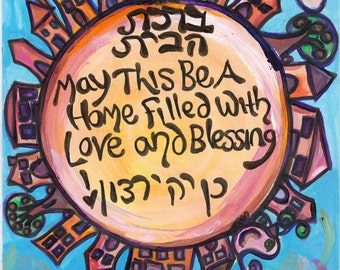 ברכת
הבית
May This Be A
Home Filled With
Love and Blessing
כן יהי רצון